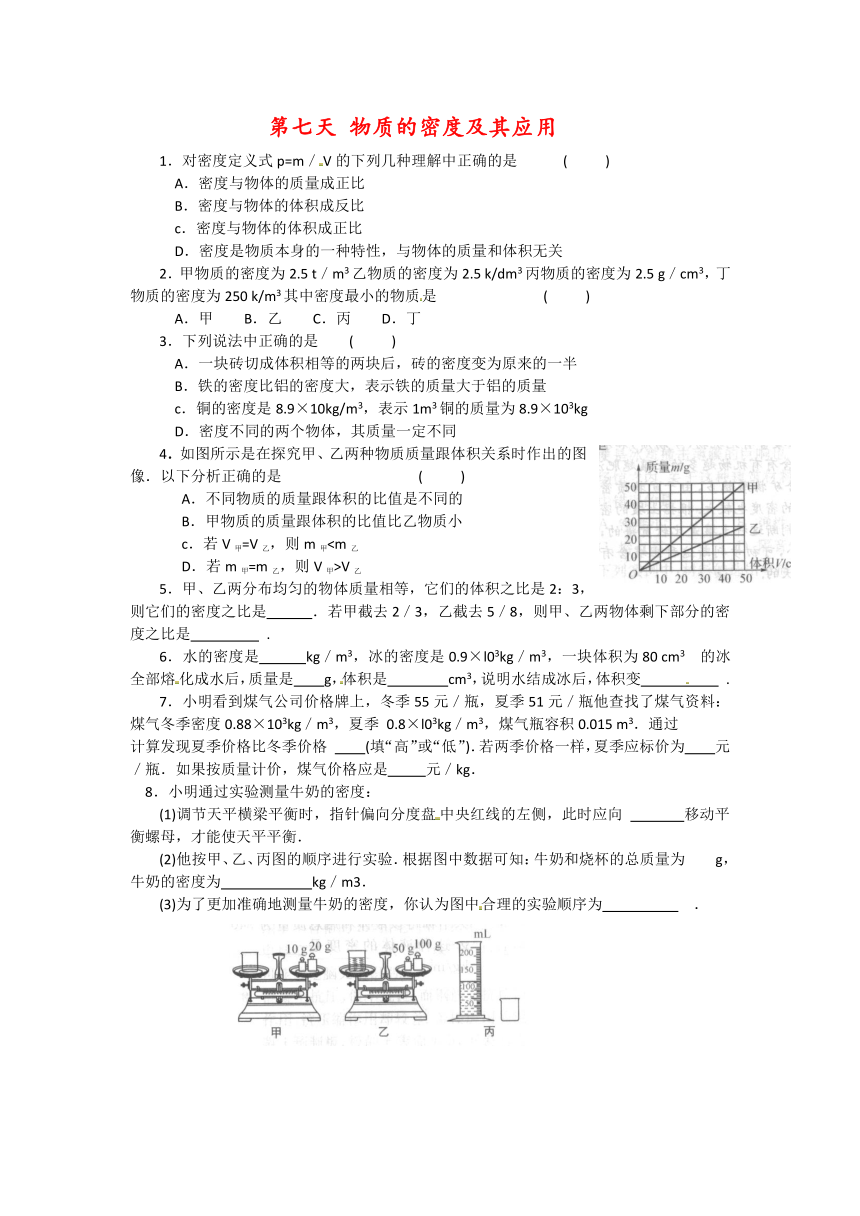 第七天 物质的密度及其应用
1．对密度定义式 p=m／V 的下列几种理解中正确的是 ( )
A．密度与物体的质量成正比
B．密度与物体的体积成反比
c．密度与物体的体积成正比
D．密度是物质本身的一种特性，与物体的质量和体积无关
2．甲物质的密度为 2.5 t／m³ 乙物质的密度为 2.5 k/dm³ 丙物质的密度为 2.5 g／cm³，丁
物质的密度为 250 k/m³ 其中密度最小的物质是 ( )
A．甲 B．乙 C．丙 D．丁
3．下列说法中正确的是 ( )
A．一块砖切成体积相等的两块后，砖的密度变为原来的一半
B．铁的密度比铝的密度大，表示铁的质量大于铝的质量
c．铜的密度是 8.9×10kg/m³，表示 1m³ 铜的质量为 8.9×10³kg
D．密度不同的两个物体，其质量一定不同
4．如图所示是在探究甲、乙两种物质质量跟体积关系时作出的图
像．以下分析正确的是 ( )
A．不同物质的质量跟体积的比值是不同的
B．甲物质的质量跟体积的比值比乙物质小
c．若 V 甲=V 乙，则 m 甲<m 乙
D．若 m 甲=m 乙，则 V 甲>V 乙
质量m/g
50
40
30
20
10
O
甲
乙
体积V/c
10 20 30 40 50
5．甲、乙两分布均匀的物体质量相等，它们的体积之比是 2：3，
则它们的密度之比是______．若甲截去 2／3，乙截去 5／8，则甲、乙两物体剩下部分的密
度之比是_________ ．
6．水的密度是______kg／m³，冰的密度是 0.9×l0³kg／m³，一块体积为 80 cm³ 的冰
全部熔化成水后，质量是____g，体积是________cm³，说明水结成冰后，体积变__________ ．
7．小明看到煤气公司价格牌上，冬季 55 元／瓶，夏季 51 元／瓶他查找了煤气资料：
煤气冬季密度 0.88×10³kg／m³，夏季 0.8×l0³kg／m³，煤气瓶容积 0.015 m³．通过
计算发现夏季价格比冬季价格 ____(填“高”或“低”)．若两季价格一样，夏季应标价为____元
／瓶．如果按质量计价，煤气价格应是_____元／kg．
8．小明通过实验测量牛奶的密度：
(1)调节天平横梁平衡时，指针偏向分度盘中央红线的左侧，此时应向 _______移动平
衡螺母，才能使天平平衡．
(2)他按甲、乙、丙图的顺序进行实验．根据图中数据可知：牛奶和烧杯的总质量为 g，
牛奶的密度为____________kg／m3．
(3)为了更加准确地测量牛奶的密度，你认为图中合理的实验顺序为__________ ．
10 g 20 g
甲
50 g 100 g
乙
mL
200
150
100
50
丙